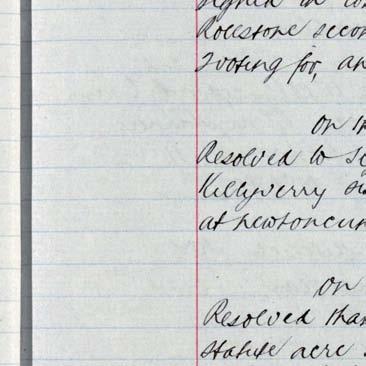 signed in
Rolestone secon
Voting for, an
on th
Resolved to se
Killyverry
at newtoncun
on
Resolved tha
statute acre